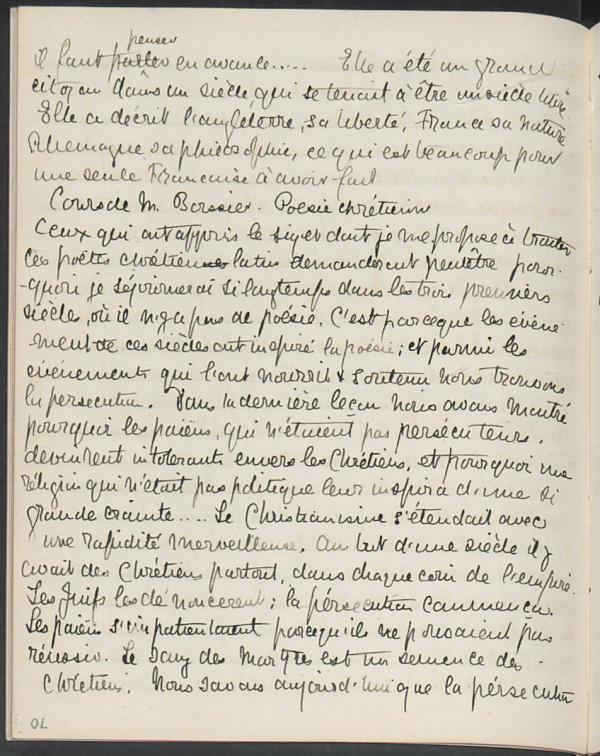 penser
il faut parler en avance..... Elle a été un grand
citoyen dans un siècle qui se tenait à être un siècle libre
Elle a décrit l'angléterre, sa liberté, France sa nature
Allemagne sa philosophie, ce qui est beaucoup pour
une seule Francaise à avoir fait
Cours de M. Boissier. Poesie chrétienn
Ceux qui ont appris le sujet dont je me propose à traiter
les poètes chrétiens latins demanderont peutêtre pour-
-quoi je séjournerai si longtemps dans les trois premiers
siècles, où il n'y a pas de poésie. C'est parceque les évène
-ments de ces siècles ont inspiré la poésie; et parmi les
événements qui l'ont nourrit & soutenu nous trouvons
la persecution. Dans la dernière leçon nous avons montré
pourquoi les païens, qui n'étaient pas persécuteurs,
devinrent intolerants envers les Chrétiens, et pourquoi une
religion qui n'était pas politique leur inspira d'une si
grande crainte.... Le Christianisme s'étendait avec
une rapidité merveilleuse. Au but d'une siècle il y
avait des Chrétiens partout, dans chaque coin de l'empire.
Les Juifs les dénoncerent; la pérsecution commença.
Les païens s'impatientaient parcequ'ils ne pouvaient pas
réussir. Le sang des martyrs est un semence des
Chrétiens. Nous savons aujourd'hui que la pérsecution
70